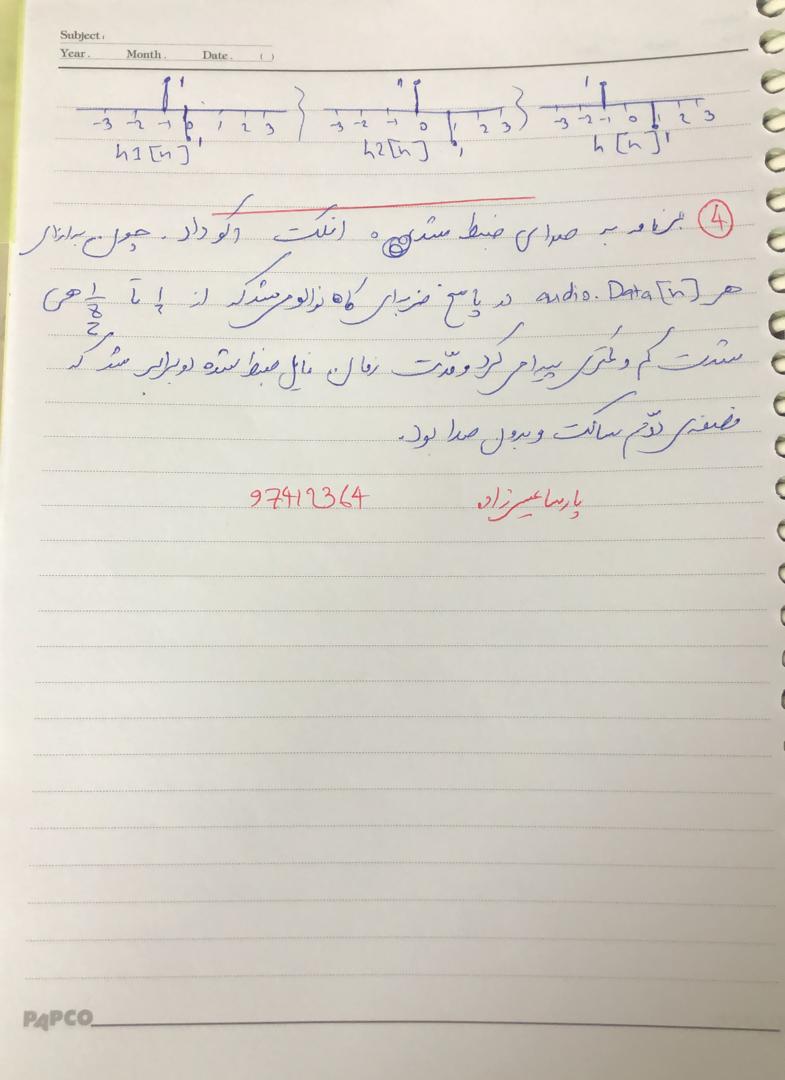 Subject:
Year. Month. Date. ( )
1 -3 -2 -1 0 1 2 3 1
1 -3 -2 -1 0 1 2 3 1
1 -3 -2 -1 0 1 2 3 1
h1[n] h2[n] h[n]
④ برنامه به صدای ضبط شده افکت اکو داد. چون به ازای
هر audio.Data[n] در پاسخ ضربه‌ای که از 1 تا 1/8 هی
شدت کم و کمتری پیدا می کرد و مدت زمان فایل ضبط شده دو برابر شد که
نصفه‌ی دوم ساکت و بدون صدا بود.
97412364
PAPCO